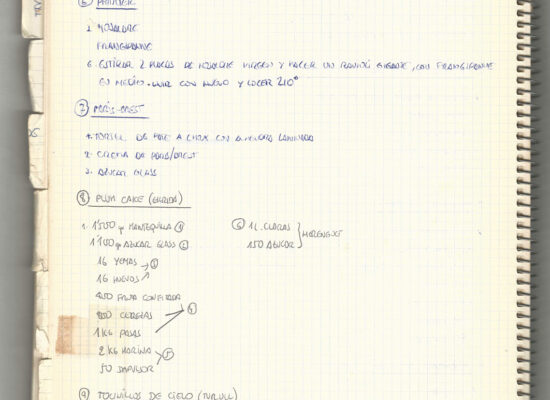 2. HOJALDRE
FRANGIPANNE
6. ESTIRAR 2 PLACAS DE HOJALDRE VIRGEN Y HACER UN RAVIOLI GIGANTE, CON FRANGIPANNE
EN MEDIO. UNIR CON HUEVO Y COCER 210°
⑦ PARIS-BREST
1. TORTELL DE PATE A CHOUX CON ALMENDRA LAMINADA
2. CREMA DE PARIS/BREST
3. AZUCAR GLASS
⑧ PLUM CAKE
1. 1'500 gr MANTEQUILLA ①
1'100 gr AZUCAR GLASS ②
16 YEMAS
16 HUEVOS
450 FRUTA CONFITADA
CEREZAS
1 KG PASAS
2 KG HARINA
50 IMPULSOR
⑥ 1L. CLARAS
150 AZUCAR
MERENGUE
⑨ TOCINILLOS DE CIELO